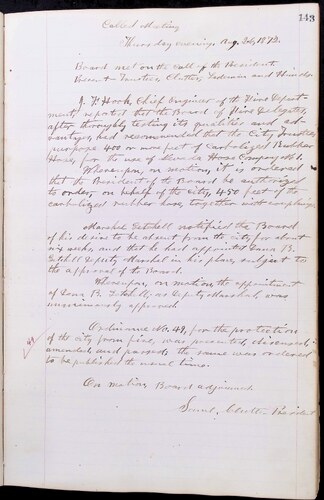 143
Called Meeting
Thursday evening, Aug.
Board met on the call of the President
Present - Trustees, Clutter, and
J. F. Hook, Chief Engineer of the Fire Depart-
ment, reported that the Board of Fire Delegates,
after throughly testing its qualities and ad-
vantages, had recommended that the City Trustees
purchase 400 or more feet of Carbolized Rubber
Hose, for the use of Hose Company No. 1.
Whereupon, on motion, it is ordered
that the President of the Board be authorized
to order, on behalf of the city, 450 feet of the
carbolized rubber hose, together with couplings
Marshal Getchell notified the Board
of his desire to be absent from the city for about
six weeks, and that he had appointed B.
Getchell Deputy Marshal in his place, subject to
the approval of the Board.
Whereupon, on motion the appointment
of B. Getchell, as Deputy Marshal, was
unanimously approved
49
Ordinance No. 49, for the protection
of the city from fire, was presented, discussed,
amended, and passed & the same was ordered
to be published the usual times.
On motion Board adjourned
Clutter President